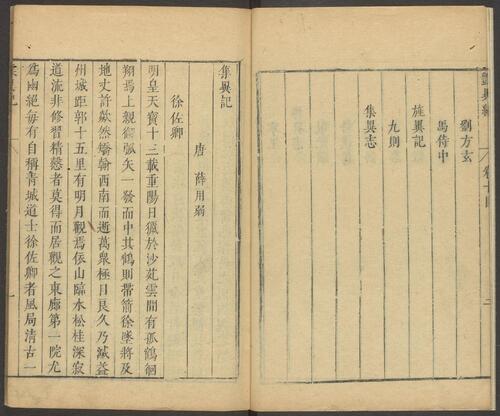 劉方玄
馬侍中
旌異記
九則
集異志
二
集異記
唐 薛用弱
徐佐卿
明皇天寶十三載重陽日獵於沙苑雲間有孤鶴徊
翔焉上親御弧矢一發而中其鶴則帶箭徐墜將及
地丈許歘然矯翰西南而逝萬眾極目良久乃滅益
州城距郭十五里有明月觀焉依山臨水松桂深寂
道流非修習精慤者莫得而居觀之東廊第一院尤
為幽絕每有自稱青城道士徐佐卿者風局清古一
集異記
一